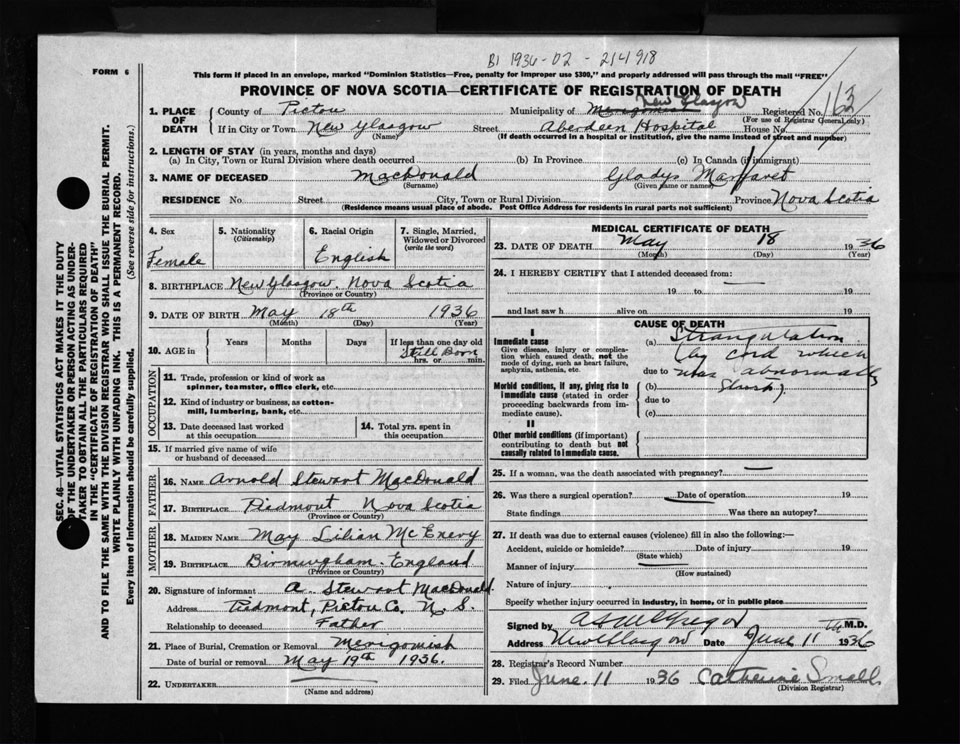 B1 1936-02-214918
FORM 6
This form if placed in an envelope, marked "Dominion Statistics—Free, penalty for improper use $300," and properly addressed will pass through the mail "FREE"
PROVINCE OF NOVA SCOTIA—CERTIFICATE OF REGISTRATION OF DEATH
1. PLACE OF DEATH
County of Pictou Municipality of Merigomish New Glasgow Registered No. 163
(For use of Registrar General only)
If in City or Town New Glasgow Street Aberdeen Hospital House No.
(Name) (If death occurred in a hospital or institution, give the name instead of street and number)
2. LENGTH OF STAY (in years, months and days)
(a) In City, Town or Rural Division where death occurred (b) In Province (c) In Canada (if immigrant)
3. NAME OF DECEASED MacDonald Gladys Margaret
(Surname) (Given name or names)
RESIDENCE No. Street City, Town or Rural Division Province Nova Scotia
(Residence means usual place of abode. Post Office Address for residents in rural parts not sufficient)
SEC. 46—VITAL STATISTICS ACT MAKES IT THE DUTY
OF THE UNDERTAKER OR PERSON ACTING AS UNDER-
TAKER TO OBTAIN ALL THE PARTICULARS REQUIRED
IN THE "CERTIFICATE OF REGISTRATION OF DEATH"
AND TO FILE THE SAME WITH THE DIVISION REGISTRAR WHO SHALL ISSUE THE BURIAL PERMIT.
WRITE PLAINLY WITH UNFADING INK. THIS IS A PERMANENT RECORD.
Every item of information should be carefully supplied. (See reverse side for instructions.)
4. Sex
Female
5. Nationality
(Citizenship)
6. Racial Origin
English
7. Single, Married,
Widowed or Divorced
(write the word)
8. BIRTHPLACE New Glasgow Nova Scotia
(Province or Country)
9. DATE OF BIRTH May 18th 1936
(Month) (Day) (Year)
10. AGE in
Years Months Days If less than one day old
Still Born
hrs. or min.
OCCUPATION
11. Trade, profession or kind of work as
spinner, teamster, office clerk, etc.
12. Kind of industry or business, as cotton-
mill, lumbering, bank, etc.
13. Date deceased last worked
at this occupation
14. Total yrs. spent in
this occupation
15. If married give name of wife
or husband of deceased
FATHER
16. NAME Arnold Stewart MacDonald
17. BIRTHPLACE Piedmont Nova Scotia
(Province or Country)
MOTHER
18. MAIDEN NAME May Lilian McEnery
19. BIRTHPLACE Birmingham England
(Province or Country)
20. Signature of informant A. Stewart MacDonald
Address Piedmont, Pictou Co. N. S.
Relationship to deceased Father
21. Place of Burial, Cremation or Removal Merigomish
Date of burial or removal May 19th 1936.
22. UNDERTAKER
(Name and address)
MEDICAL CERTIFICATE OF DEATH
23. DATE OF DEATH May 18 1936
(Month) (Day) (Year)
24. I HEREBY CERTIFY that I attended deceased from:
19 to 19
and last saw h alive on 19
CAUSE OF DEATH
I
Immediate cause
Give disease, injury or complica-
tion which caused death, not the
mode of dying, such as heart failure,
asphyxia, asthenia, etc.
Morbid conditions, if any, giving rise to
immediate cause (stated in order
proceeding backwards from im-
mediate cause).
II
Other morbid conditions (if important)
contributing to death but not
causally related to immediate cause.
(a) Strangulation
(by cord which
due to was abnormally
(b) short).
due to
(c)
25. If a woman, was the death associated with pregnancy?
26. Was there a surgical operation? Date of operation 19
State findings Was there an autopsy?
27. If death was due to external causes (violence) fill in also the following:—
Accident, suicide or homicide? Date of injury 19
(State which)
Manner of injury
(How sustained)
Nature of injury
Specify whether injury occurred in industry, in home, or in public place
Signed by M.D.
Address New Glasgow Date June 11th 1936
28. Registrar's Record Number
29. Filed June. 11 1936 Catherine Small
(Division Registrar)